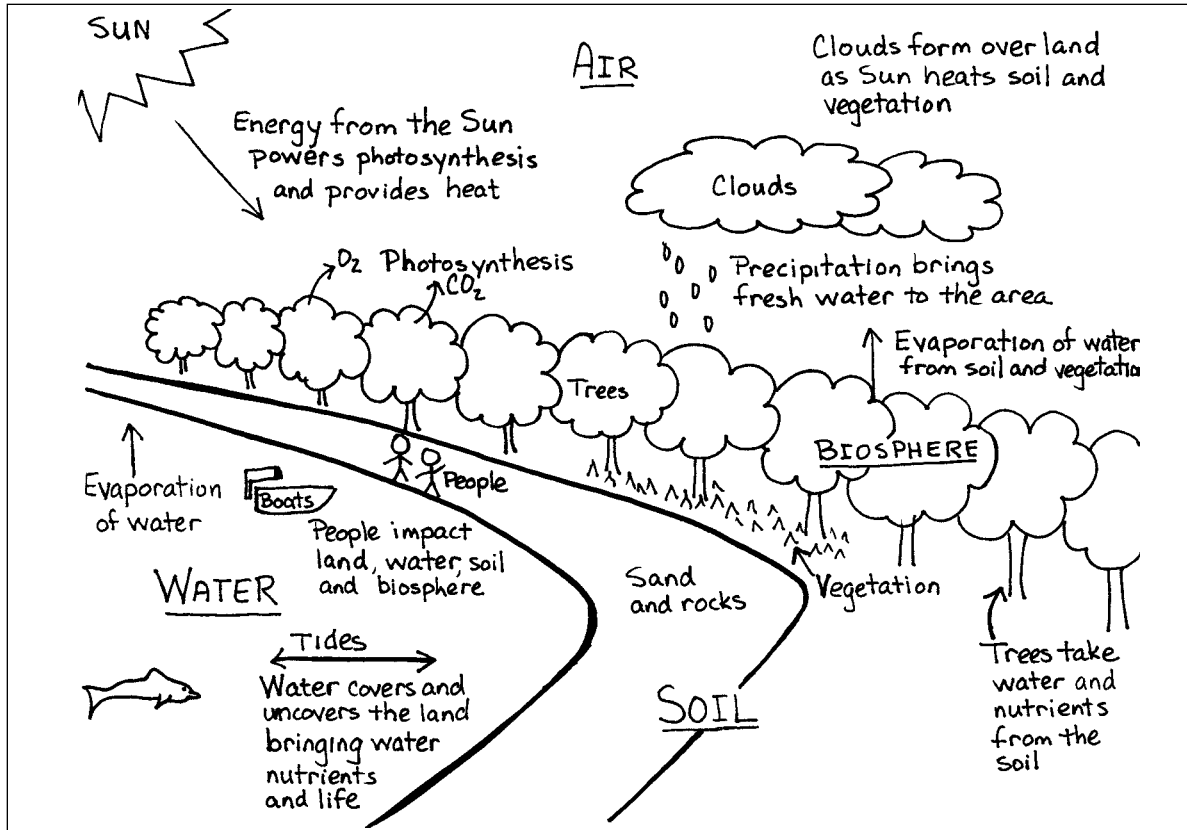 SUN
AIR
Clouds form over land
as Sun heats soil and
vegetation
Energy from the Sun
powers photosynthesis
and provides heat
Clouds
O2 Photosynthesis
CO2
Precipitation brings
fresh water to the area
Evaporation of water
from soil and vegetatio
Trees
BIOSPHERE
People
Evaporation
of water
Boats
People impact
land, water, soil
and biosphere
WATER
Sand
and rocks
Vegetation
Tides
Water covers and
uncovers the land
bringing water
nutrients
and life
SOIL
Trees take
water and
nutrients
from the
soil